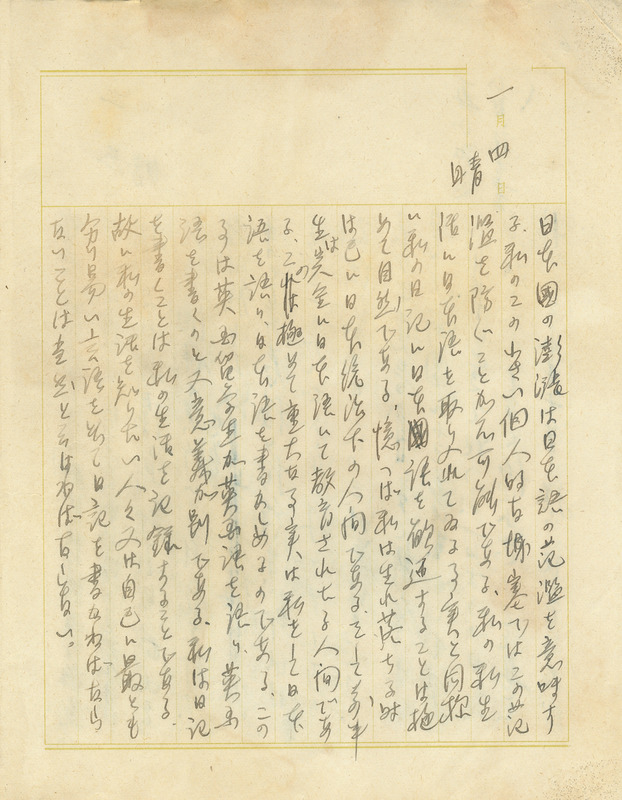 一月四日
晴
日本國の澎漲は日本語の氾濫を意味す
る。私のこの小さい個人的な城塞ではこの氾
濫を防ぐことが不可能である。私の私生
活に日本語を取り入れてゐる事実と同様
に私の日記に日本國語を することは極
めて自然である。憶へば私は生れ落ちる時
は已に日本統治下の人間である。そして 半
生は完全に日本語にて教育された人間であ
る。この は極めて重大な事実は私をして日本
語を語り日本語を書かしめるのである。この
事は英国留学生が英国語を語り、英国
語を書くのと又意義が別である。私は日記
を書くことは私の生活を記録することである。
故に私の生活を知りたい人々又は自己に最とも
分り易い言語を以て日記を書かねばなら
ないことは当然と云はねばならない。